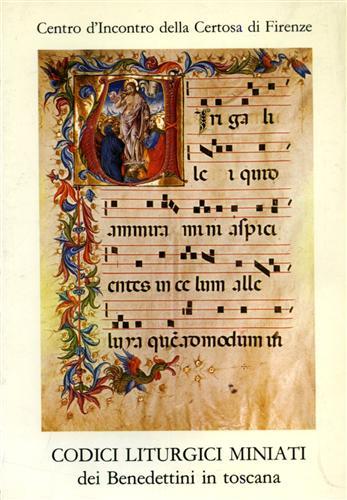 Centro d'Incontro della Certosa di Firenze
Viri gali
le i quid
ammira mini aspici
entes in ce lum alle
luya quēadmodum in
CODICI LITURGICI MINIATI
dei Benedettini in toscana